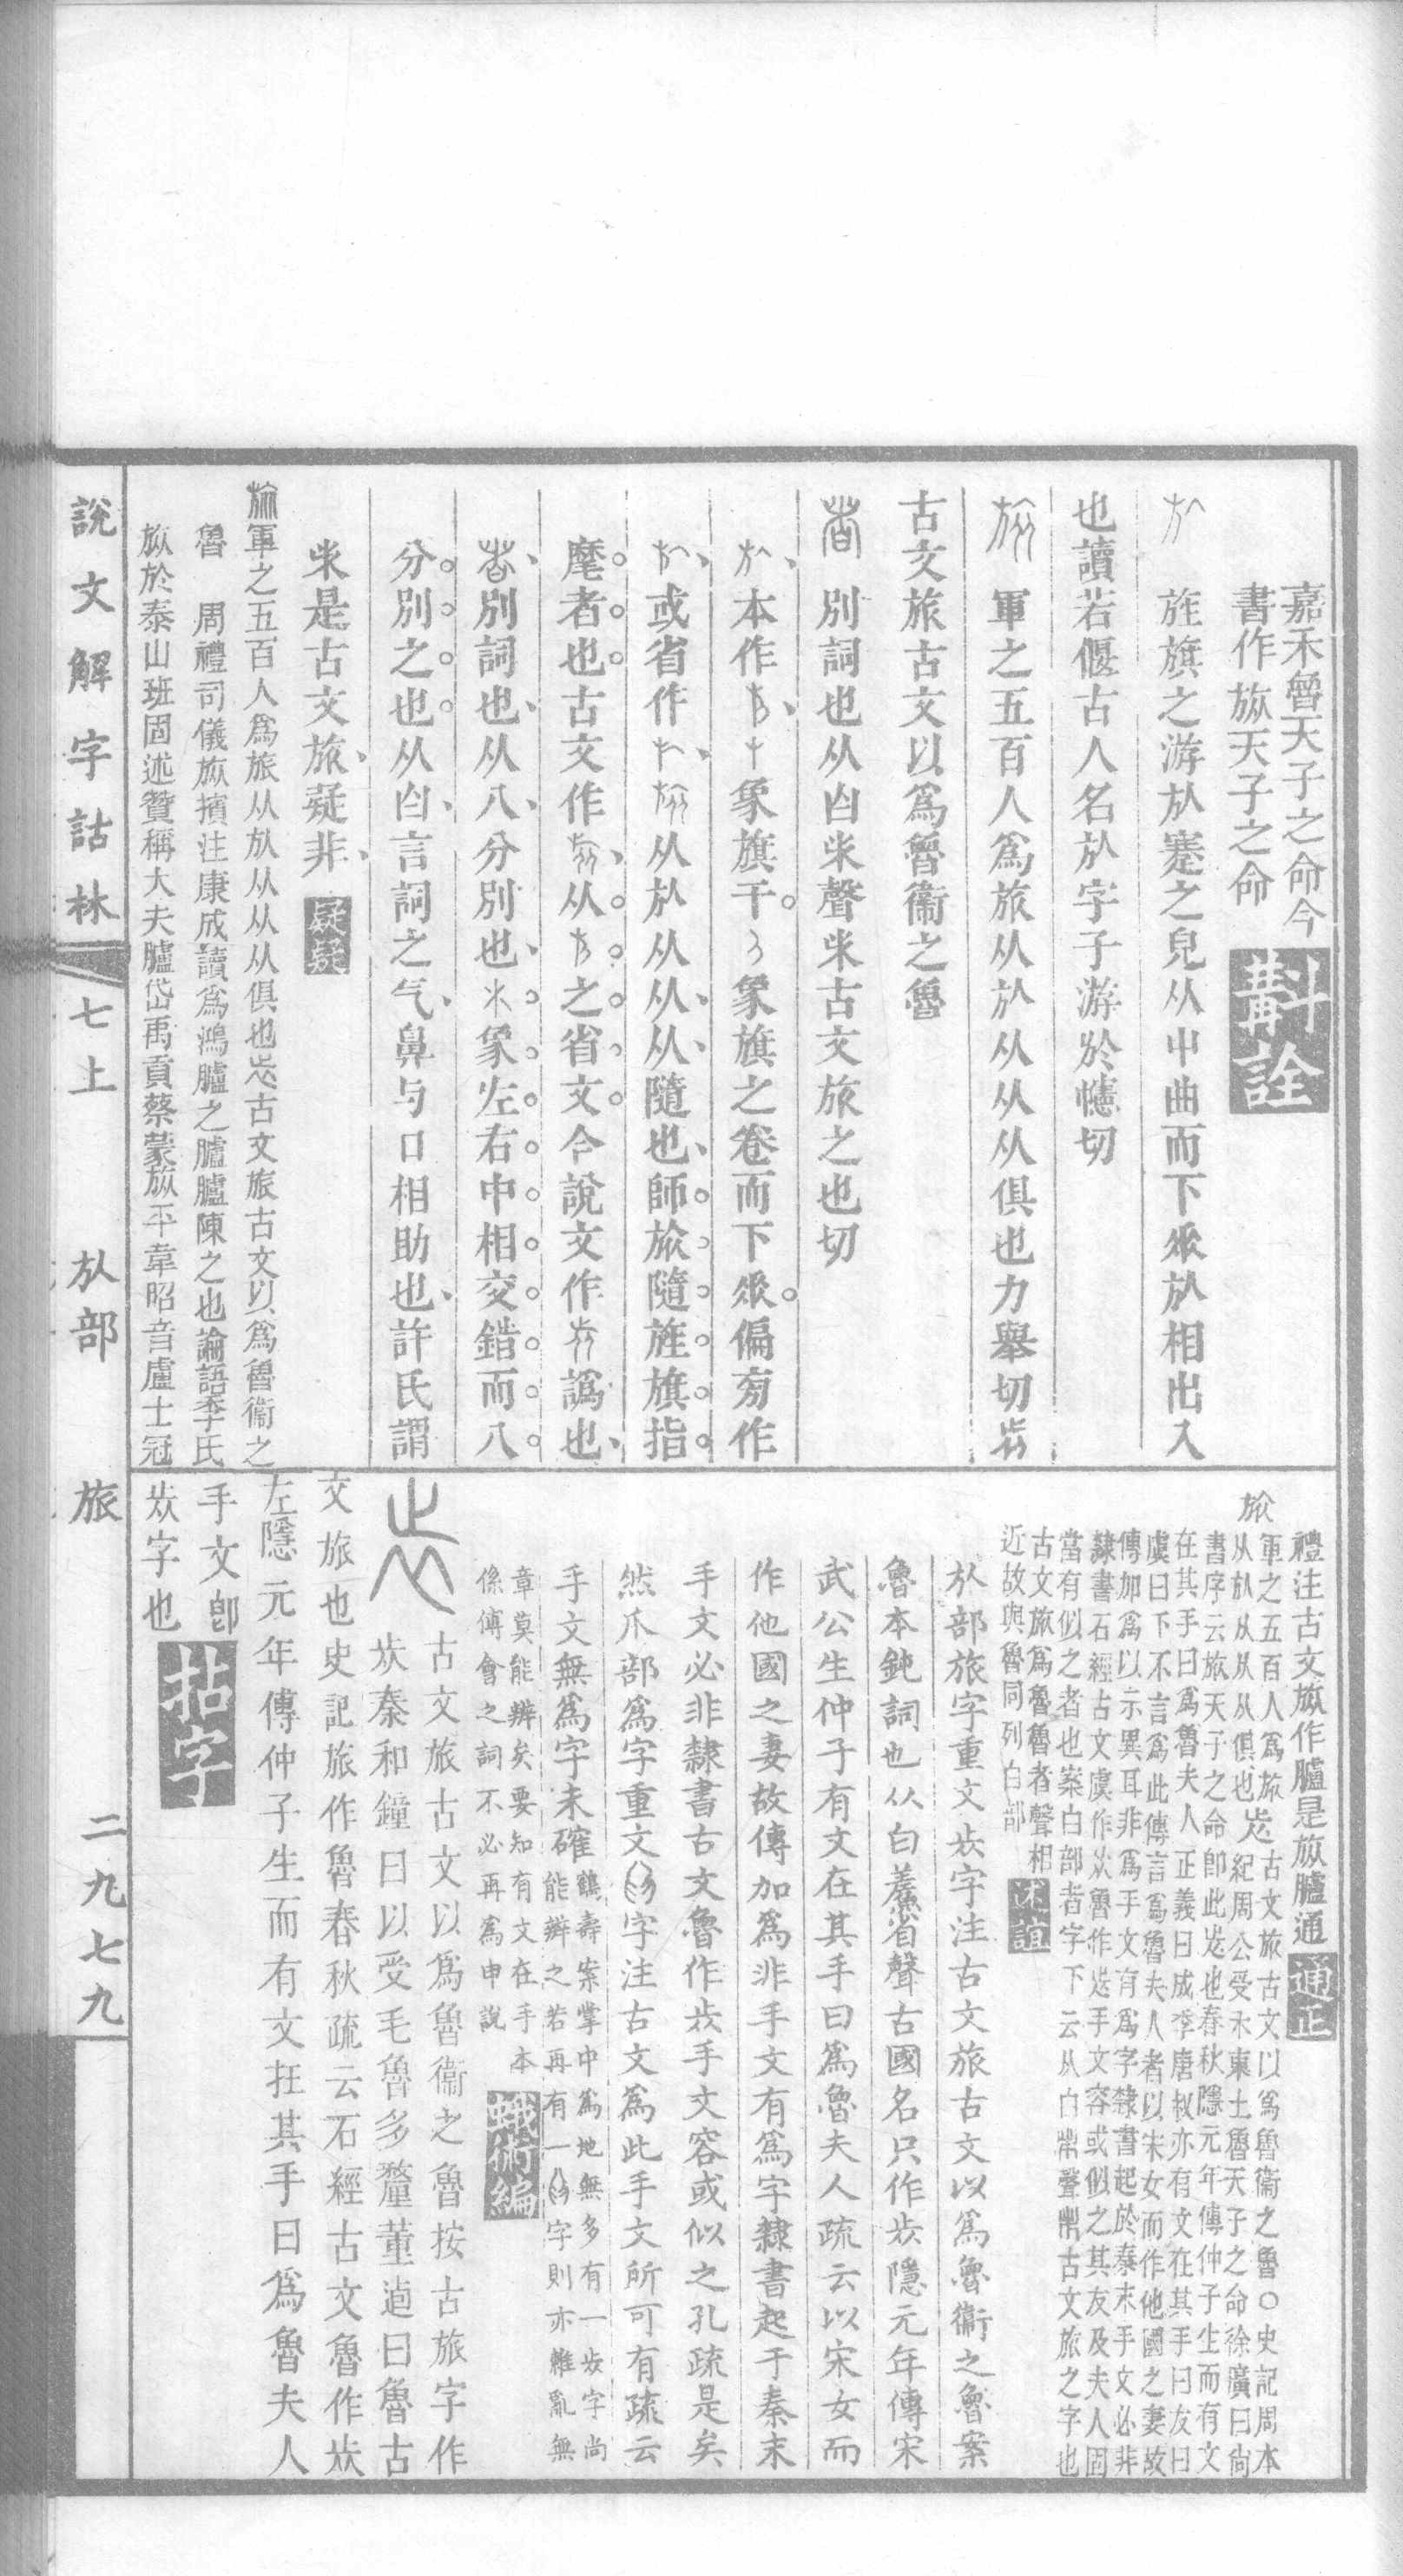 嘉禾魯天子之命今
書作旅天子之命
斠詮
㫃 旌旗之游㫃蹇之皃从屮曲而下垂㫃相出入
也讀若偃古人名㫃字子游於幰切
旅 軍之五百人爲旅从㫃从从从俱也力舉切
古文旅古文以爲魯衞之魯
者 別詞也从白聲古文旅之也切
㫃本作象旗干象旗之卷而下垂偏旁作
㫃或省作从㫃从从从隨也師旅隨旌旗指
麾者也古文作从之省文今說文作譌也
者別詞也从八分別也象左右中相交錯而八
分別之也从白言詞之气鼻与口相助也許氏謂
是古文旅疑非
疑疑
旅軍之五百人爲旅从㫃从从从俱也古文旅古文以爲魯衞之
魯 周禮司儀旅擯注康成讀爲鴻臚之臚臚陳之也論語季氏
旅於泰山班固述贊稱大夫臚岱禹貢蔡蒙旅平韋昭音盧士冠
禮注古文旅作臚是旅臚通
通正
旅
軍之五百人爲旅古文旅古文以爲魯衞之魯○史記周本
从㫃从从从俱也紀周公受禾東土魯天子之命徐廣曰尙
書序云旅天子之命卽此也春秋隱元年傳仲子生而有文
在其手曰爲魯夫人正義曰成季唐叔亦有文在其手曰友曰
虞曰下不言爲此傳言爲魯夫人者以宋女而作他國之妻故
傳加爲以示異耳非爲手文有爲字隸書起於秦末手文必非
隸書石經古文虞作魯作手文容或似之其友及夫人固
當有似之者也案白部者字下云从白聲古文旅之字也
古文旅爲魯魯者聲相
近故與魯同列白部
述誼
㫃部旅字重文字注古文旅古文以爲魯衞之魯案
魯本鈍詞也从白省聲古國名只作隱元年傳宋
武公生仲子有文在其手曰爲魯夫人疏云以宋女而
作他國之妻故傳加爲非手文有爲字隸書起于秦末
手文必非隸書古文魯作手文容或似之孔疏是矣
然爪部爲字重文字注古文爲此手文所可有疏云
手文無爲字未確
鶴壽案掌中爲地無多有一字尚
能辨之若再有一字則亦雜亂無
章莫能辨矣要知有文在手本
係傅會之詞不必再爲申說
蛾術編
古文旅古文以爲魯衞之魯按古旅字作
秦和鐘曰以受毛魯多釐董逌曰魯古
文旅也史記旅作魯春秋疏云石經古文魯作
左隱元年傳仲子生而有文在其手曰爲魯夫人
手文卽
字也
拈字
說文解字詁林
七上
㫃部
旅
二九七九